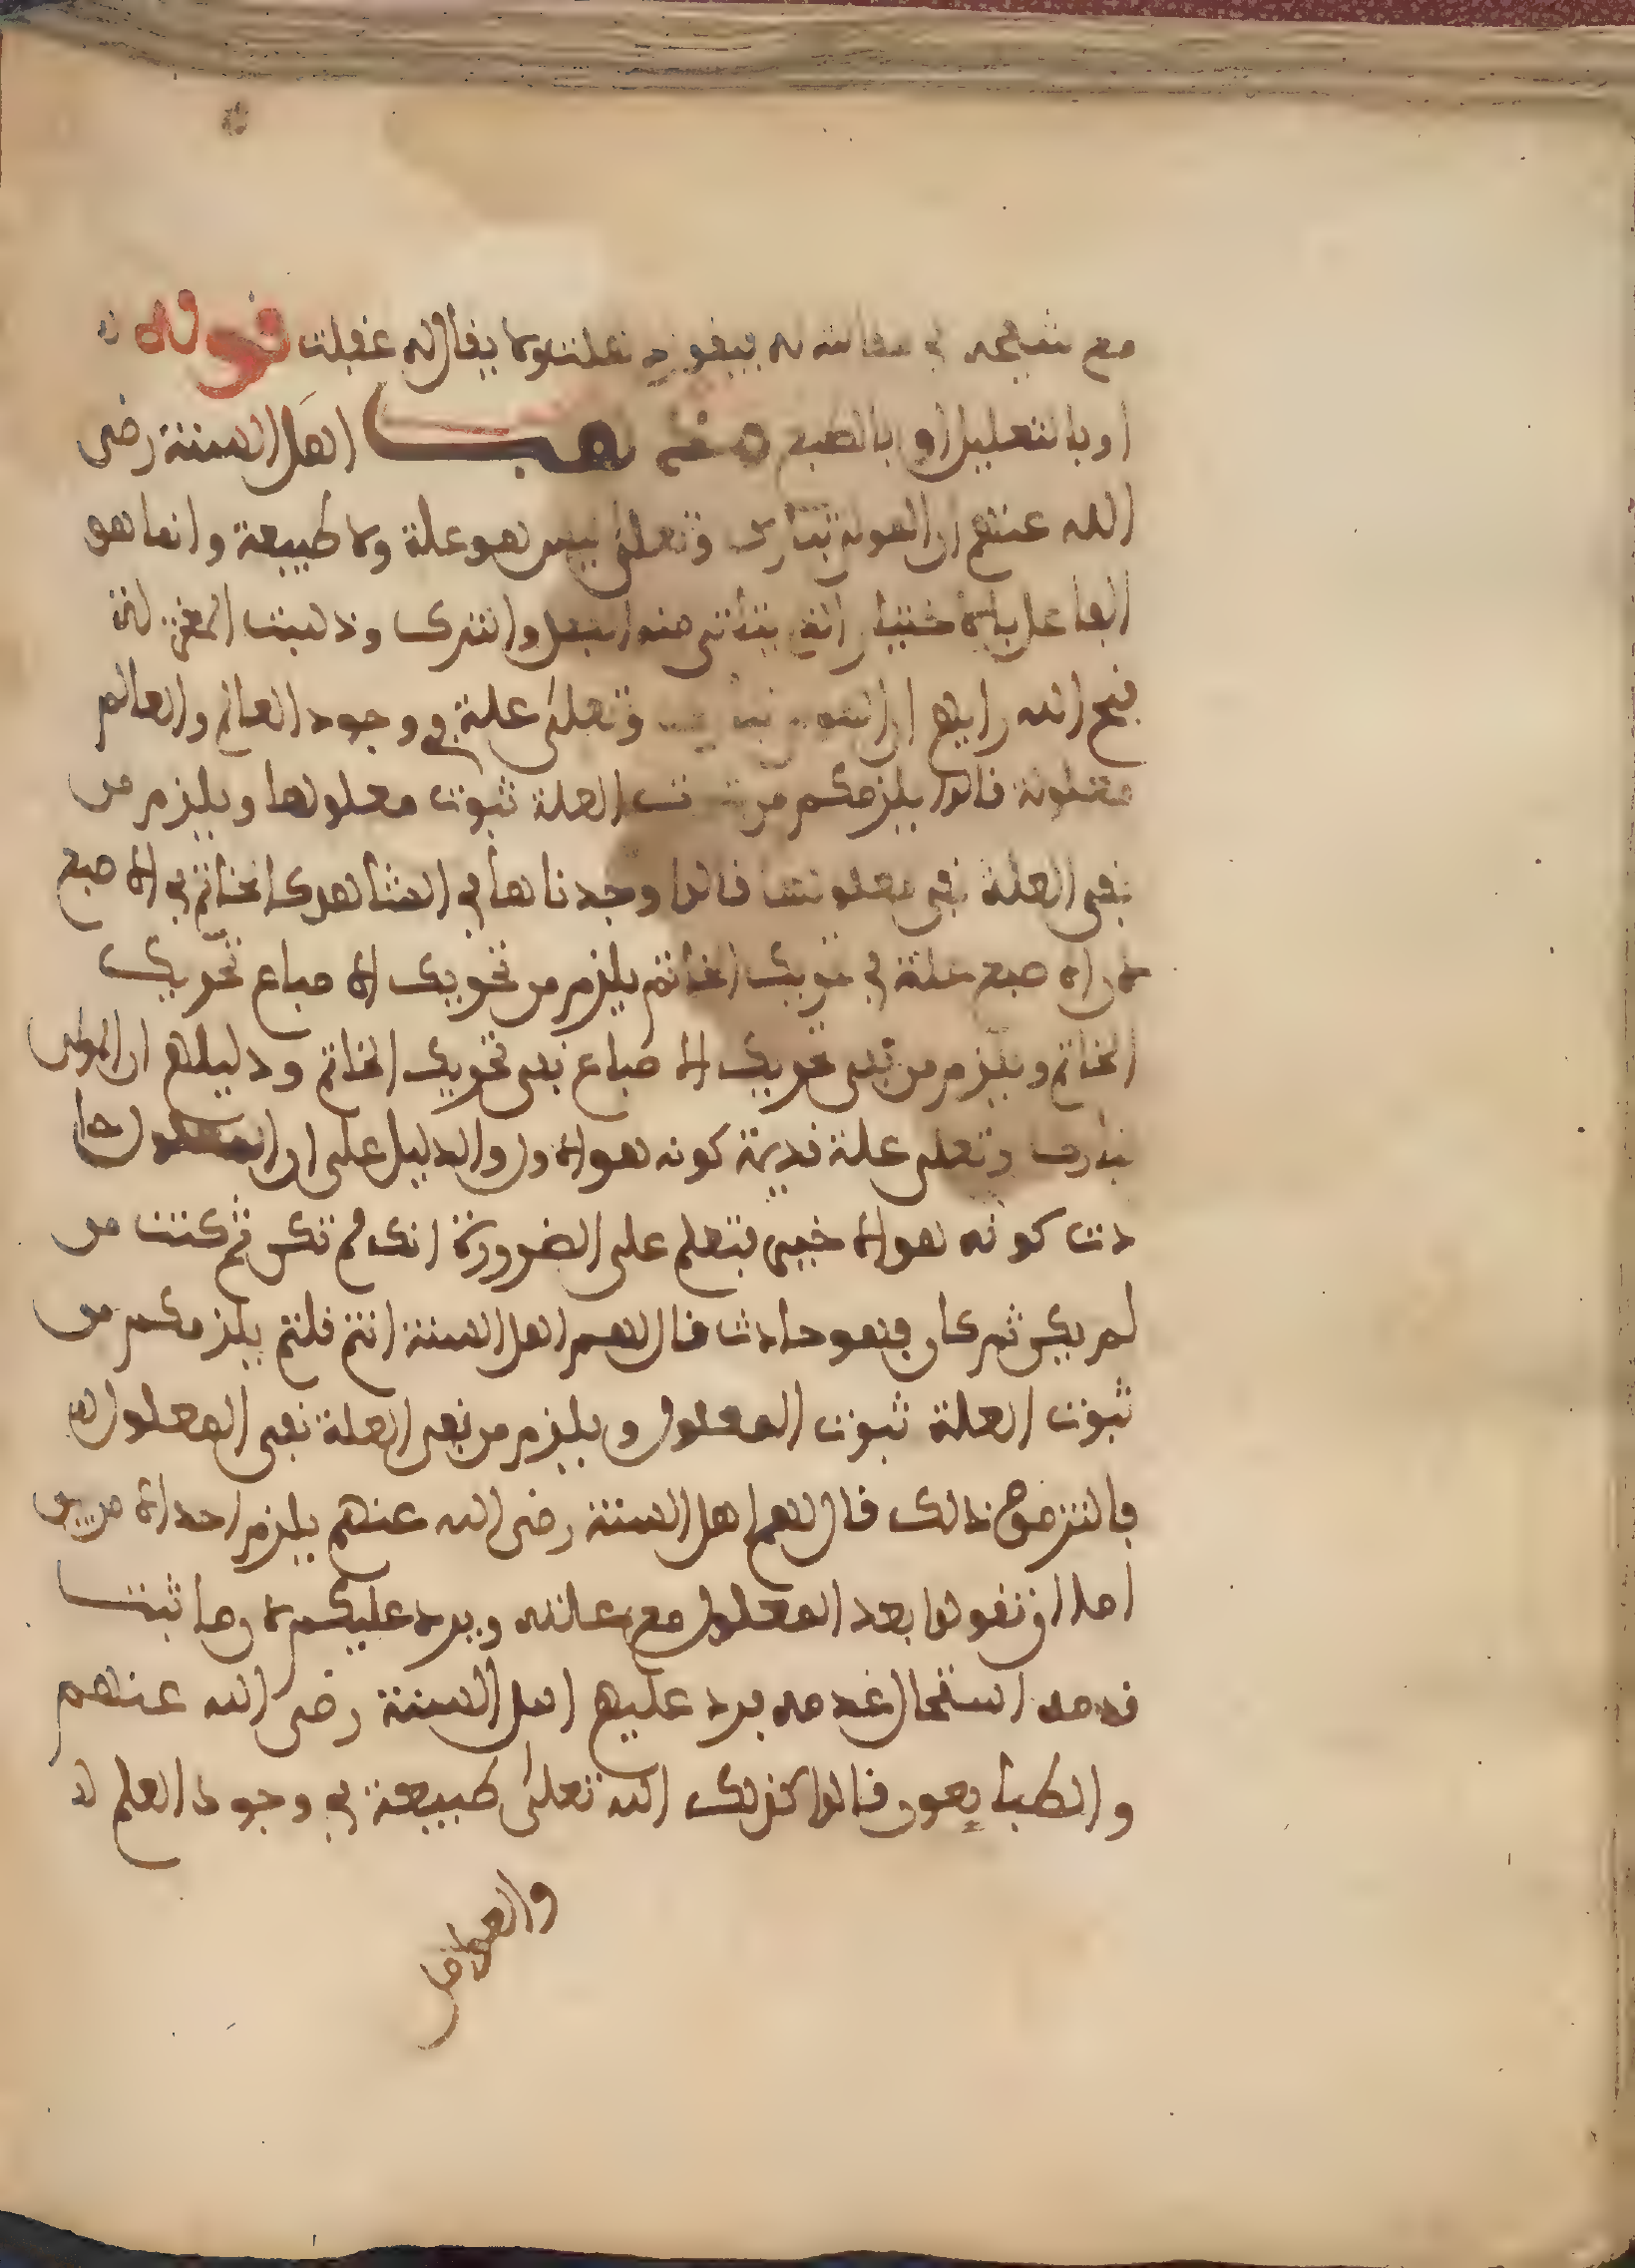 مع شيخه في مقالته له فيقول نعلته ولا يقال له غفلت قوله
او بالتعليل او بالطبع مذهب اهل السنة رضي
الله عنهم ان المولى تبارك وتعلى ليس هو علة ولا طبيعة وانما هو
الفاعل بالاختيار الذي يتأتى منه الفعل والترك وذهبت المعتزلة
قبح الله رايهم ان الله تبارك وتعلى علة في وجود العالم والعالم
معلوله قالوا يلزمكم من ثبت العلة ثبوت معلولها ويلزم من
نفي العلة نفي معلولها قالوا وجدناها في المشاهد كالخاتم في الاصبع
لان الاصبع علة في تحريك الخاتم يلزم من تحريك الاصباع تحريك
الخاتم ويلزم من نفي تحريك الاصباع نفي تحريك الخاتم ودليلهم ان المولى
تبارك وتعلى علة قديمة كونه هو الاول والدليل على ان المعلول حا
دث كونه هو الاخير فتعلم على الضرورة انك لم تكن ثم كنت من
لم يكن ثم كان فهو حادث قال لهم اهل السنة انتم قلتم يلزمكم من
ثبوت العلة ثبوت المعلول ويلزم من نفي العلة نفي المعلول
فالتزموا ذالك قال لهم اهل السنة رضي الله عنهم يلزم احد الامرين
اما ان تقولوا بعد المعلول مع علته ويرد عليكم لان ما ثبت
قدمه استحال عدمه فرد عليهم اهل السنة رضي الله عنهم
والطبايعون قالوا كذلك الله تعلى طبيعة في وجود العلم